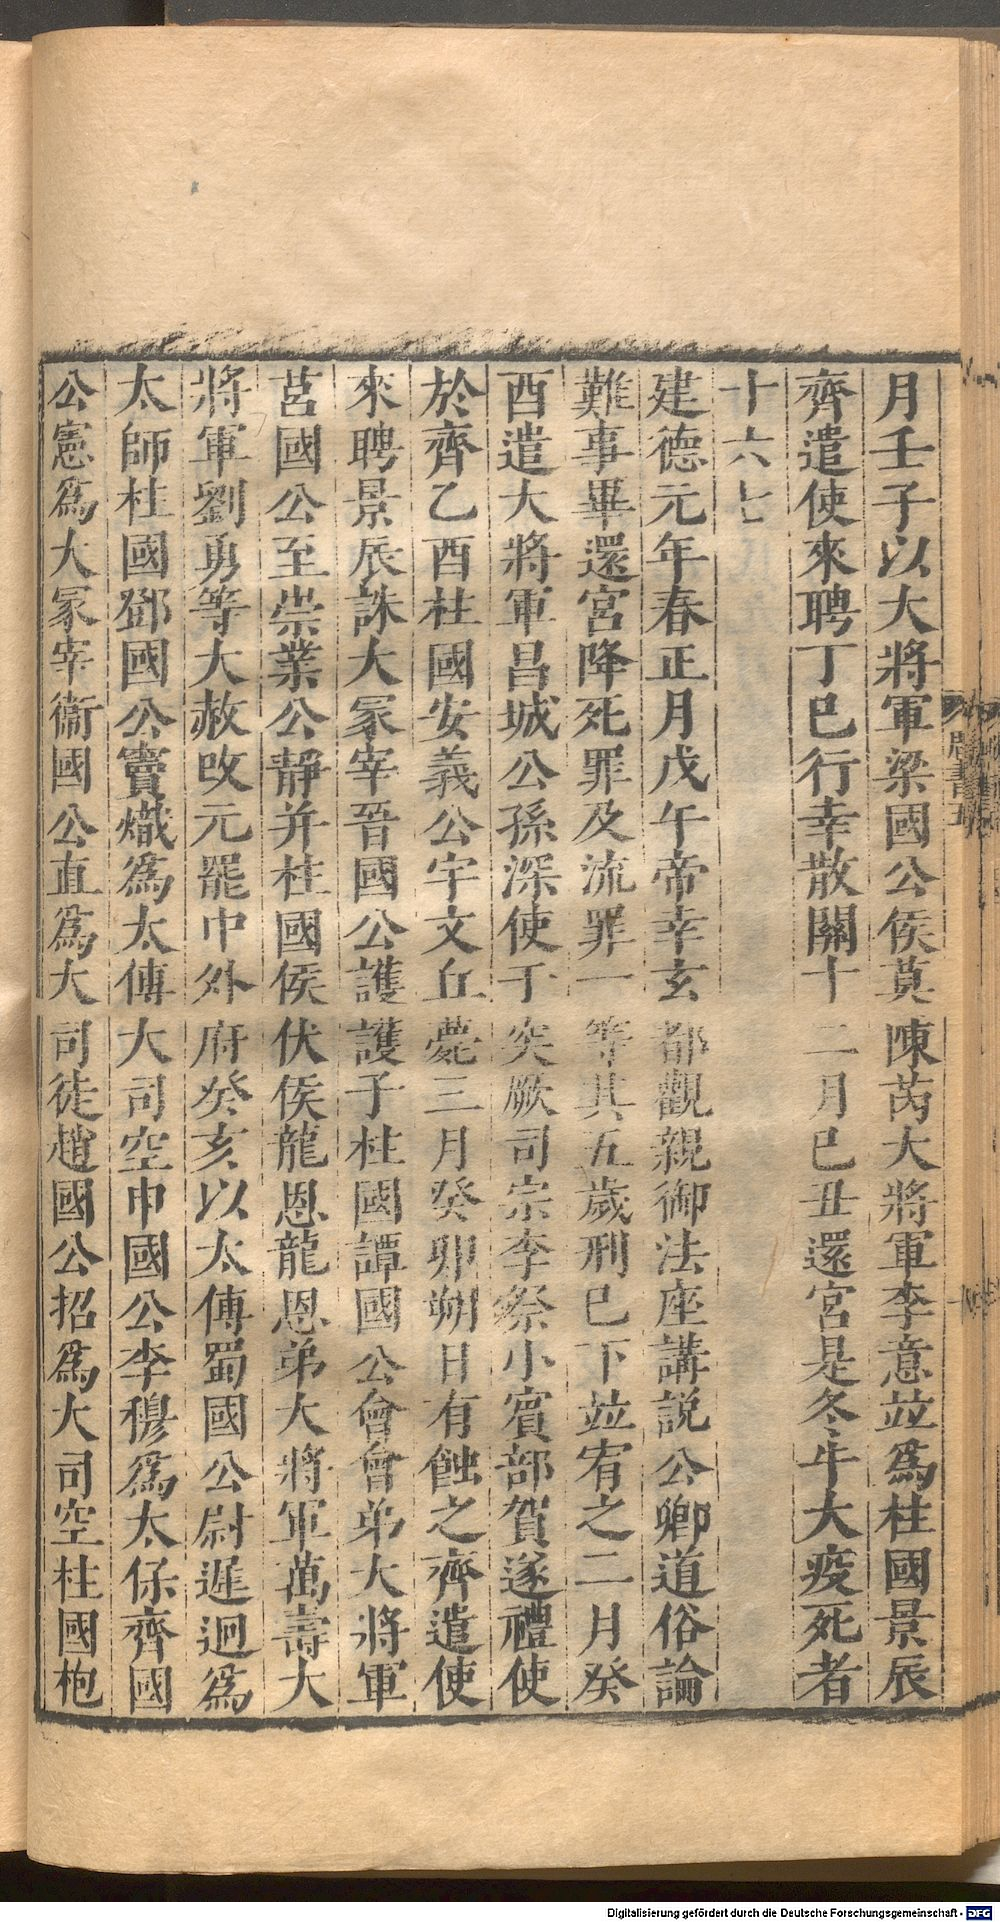 月壬子以大將軍梁國公侯莫陳芮大將軍李意竝爲柱國景辰
齊遣使來聘丁巳行幸散關十二月巳丑還宮是冬牛大疫死者
十六七
建德元年春正月戊午帝幸玄都觀親御法座講説公卿道俗論
難事畢還宮降死罪及流罪一等其五歲刑巳下竝宥之二月癸
酉遣大將軍昌城公孫深使于突厥司宗李祭小賓部賀遂禮使
於齊乙酉柱國安義公宇文丘薨三月癸卯朔日有蝕之齊遣使
來聘景辰誅大冢宰晉國公護護子柱國譚國公會會弟大將軍
莒國公至崇業公靜并柱國侯伏侯龍恩龍恩弟大將軍萬壽大
將軍劉勇等大赦改元罷中外府癸亥以太傅蜀國公尉遲迥爲
太師柱國鄧國公竇熾爲太傅大司空申國公李穆爲太保齊國
公憲爲大冢宰衞國公直爲大司徒趙國公招爲大司空柱國枹
周書五
Digitalisierung gefördert durch die Deutsche Forschungsgemeinschaft - DFG